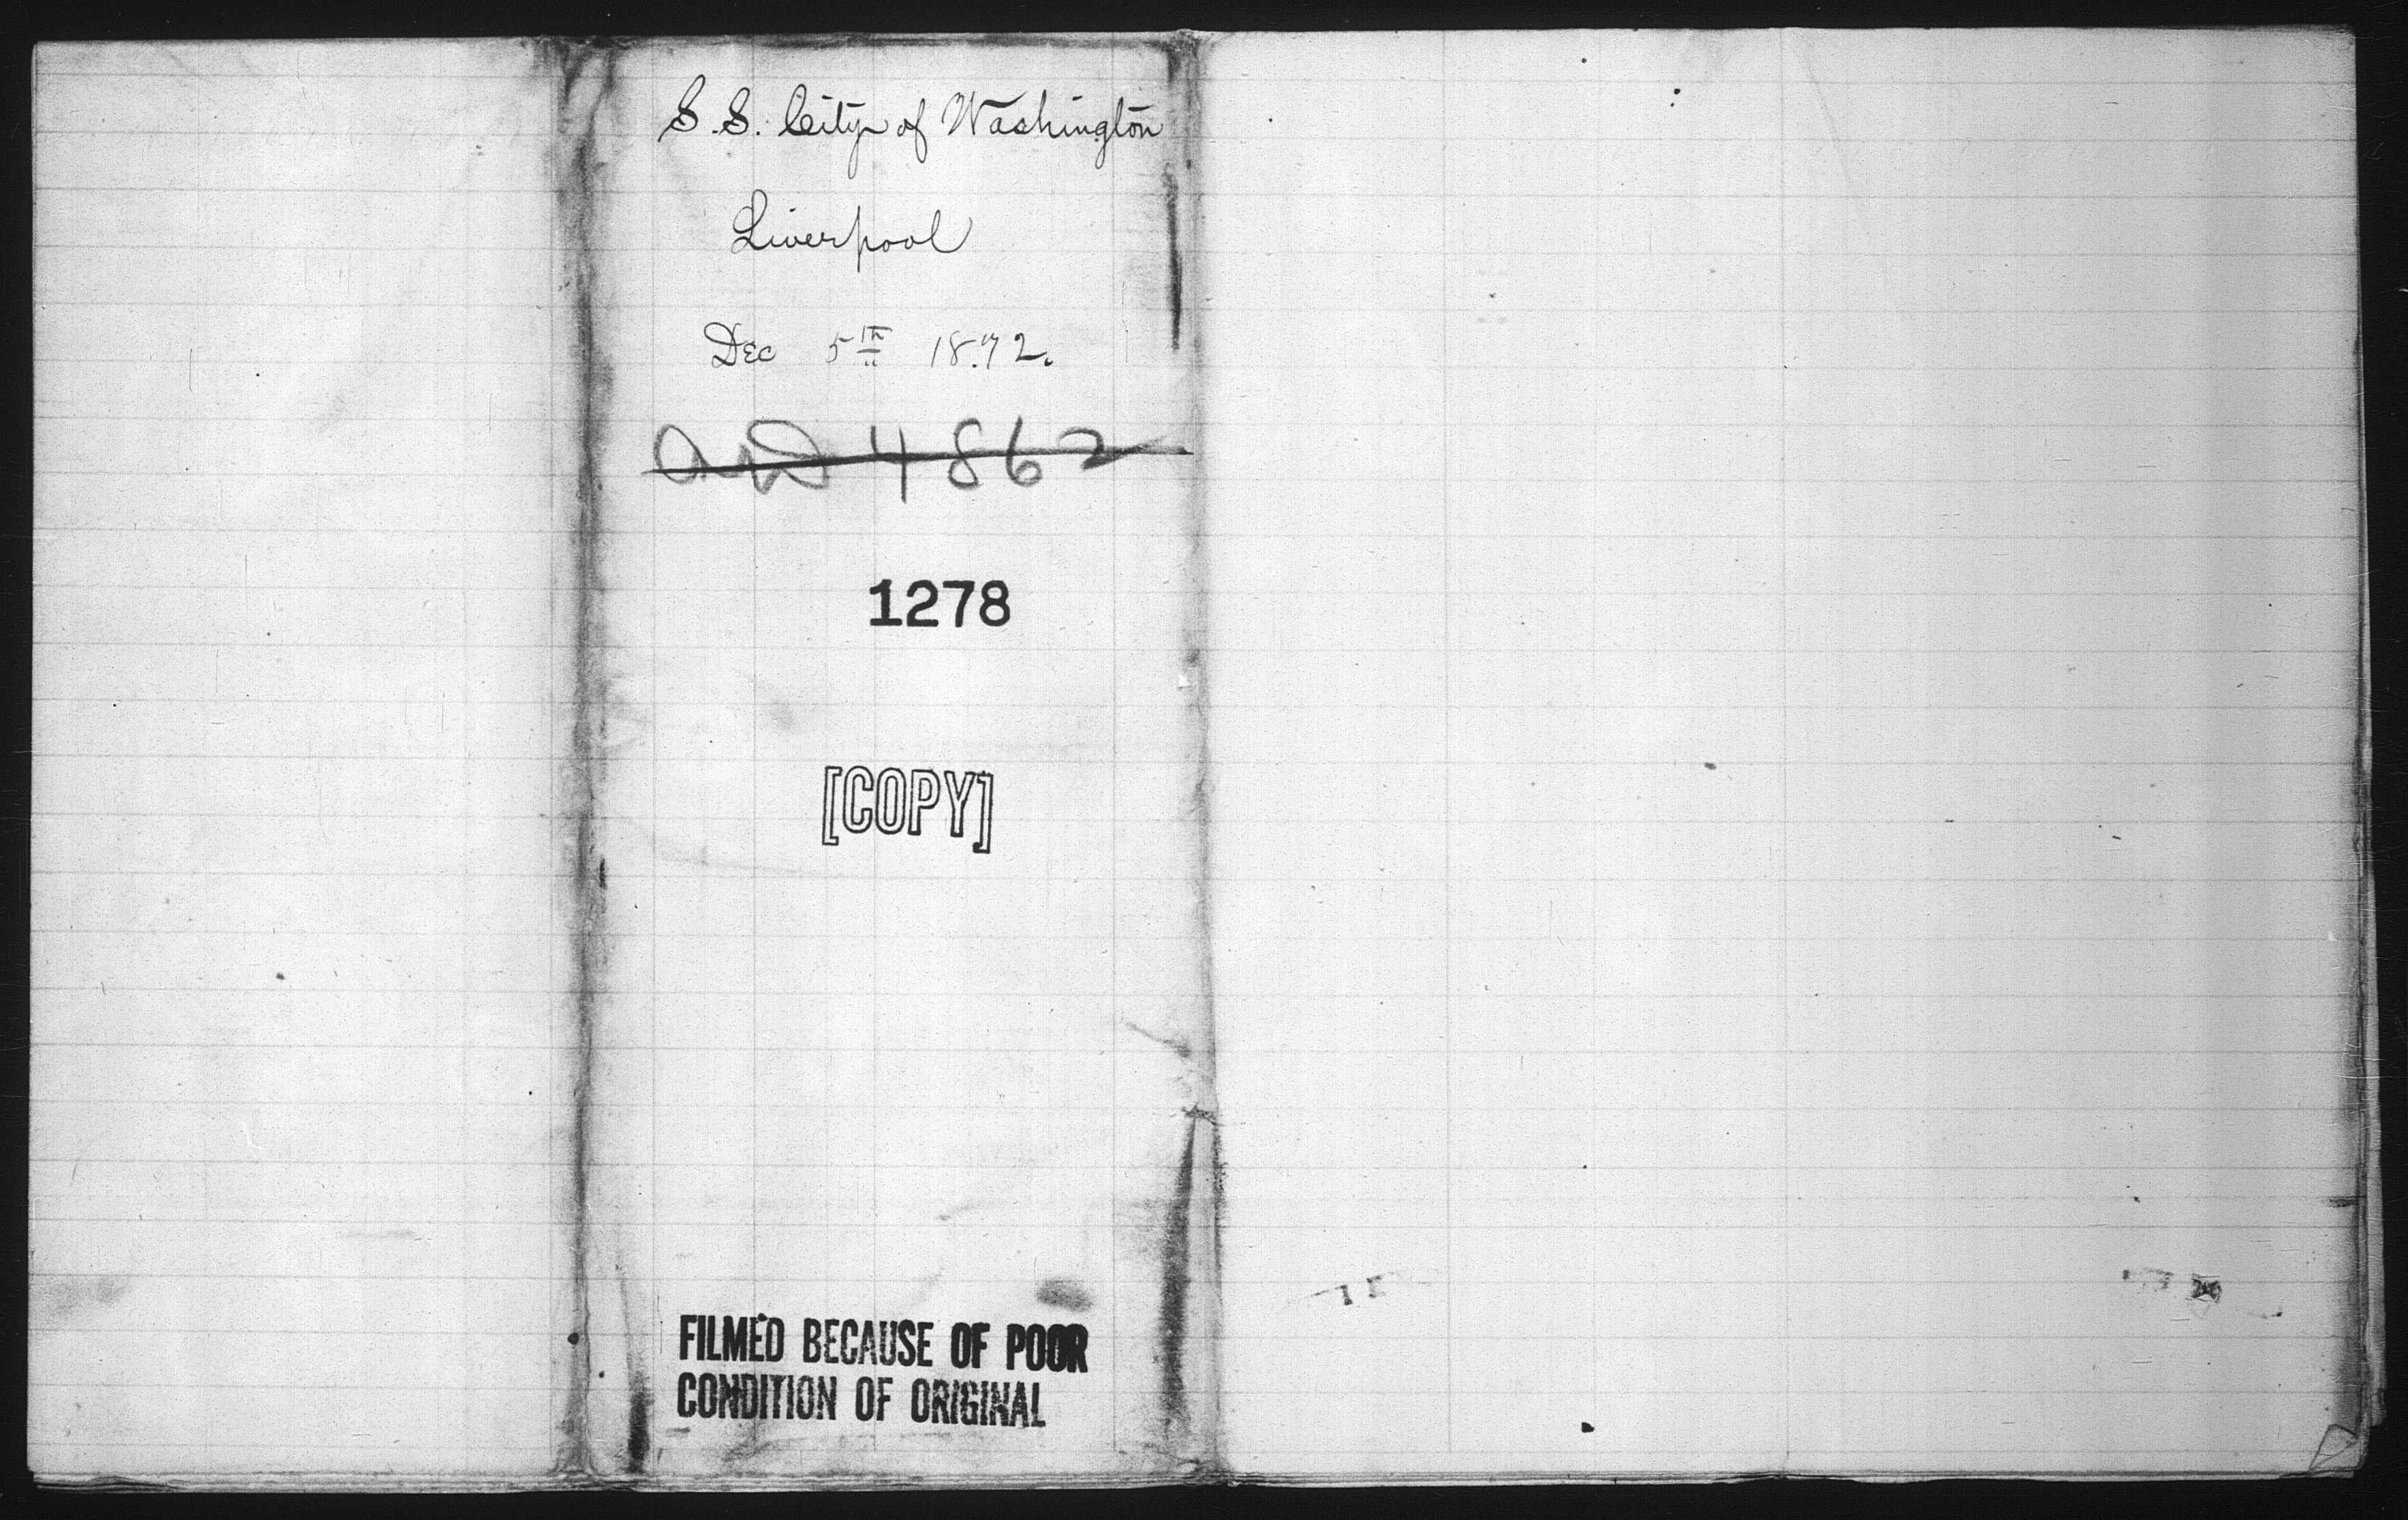 S.S. City of Washington
Liverpool
Dec 5th 1872.
4862
1278
[COPY]
FILMED BECAUSE OF POOR
CONDITION OF ORIGINAL